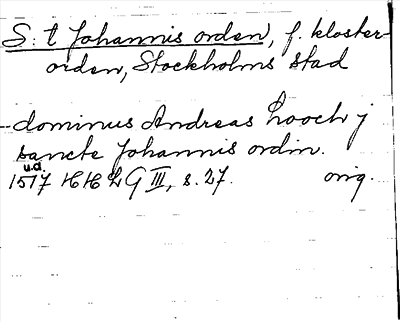 S:t Johannis orden, f. kloster-
orden, Stockholms stad
dominus Andreas Looch j
sancte Johannis ordin.
u.d.
1517 HHLG III, s. 27. orig.